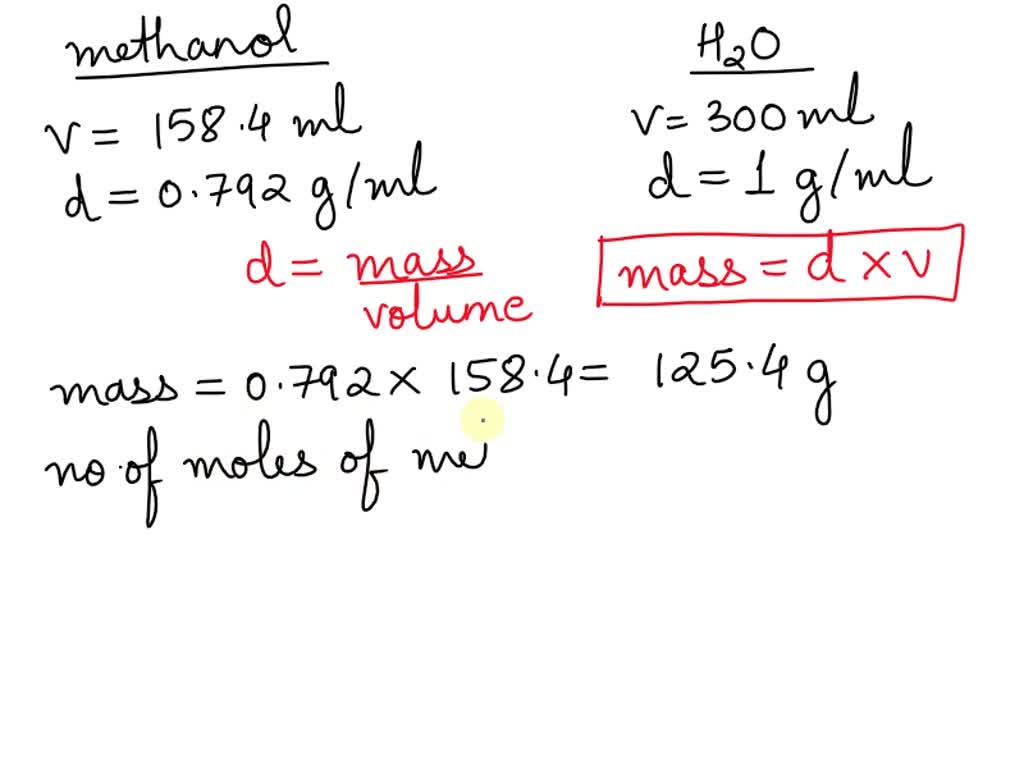 methanol
H₂O
v = 158.4 ml
v = 300 ml
d = 0.792 g/ml
d = 1 g/ml
d = mass/volume
mass = d x v
mass = 0.792 x 158.4 = 125.4 g
no. of moles of me